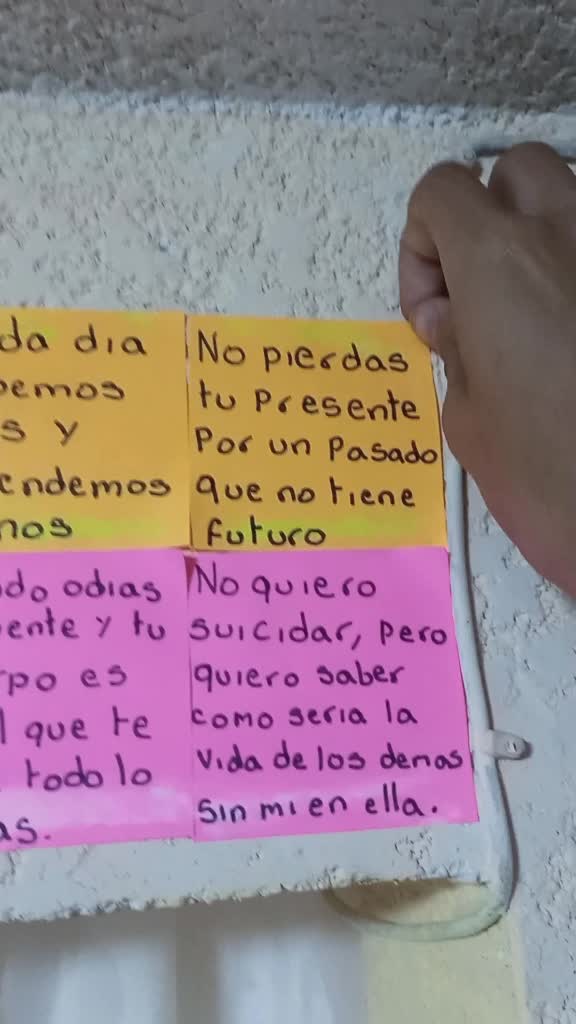 da dia
bemos
s y
endemos
nos
No pierdas
tu Presente
Por un Pasado
que no tiene
futuro
do odias
ente y tu
rpo es
l que te
todo lo
as.
No quiero
suicidar, pero
quiero saber
como seria la
vida de los demas
sin mi en ella.